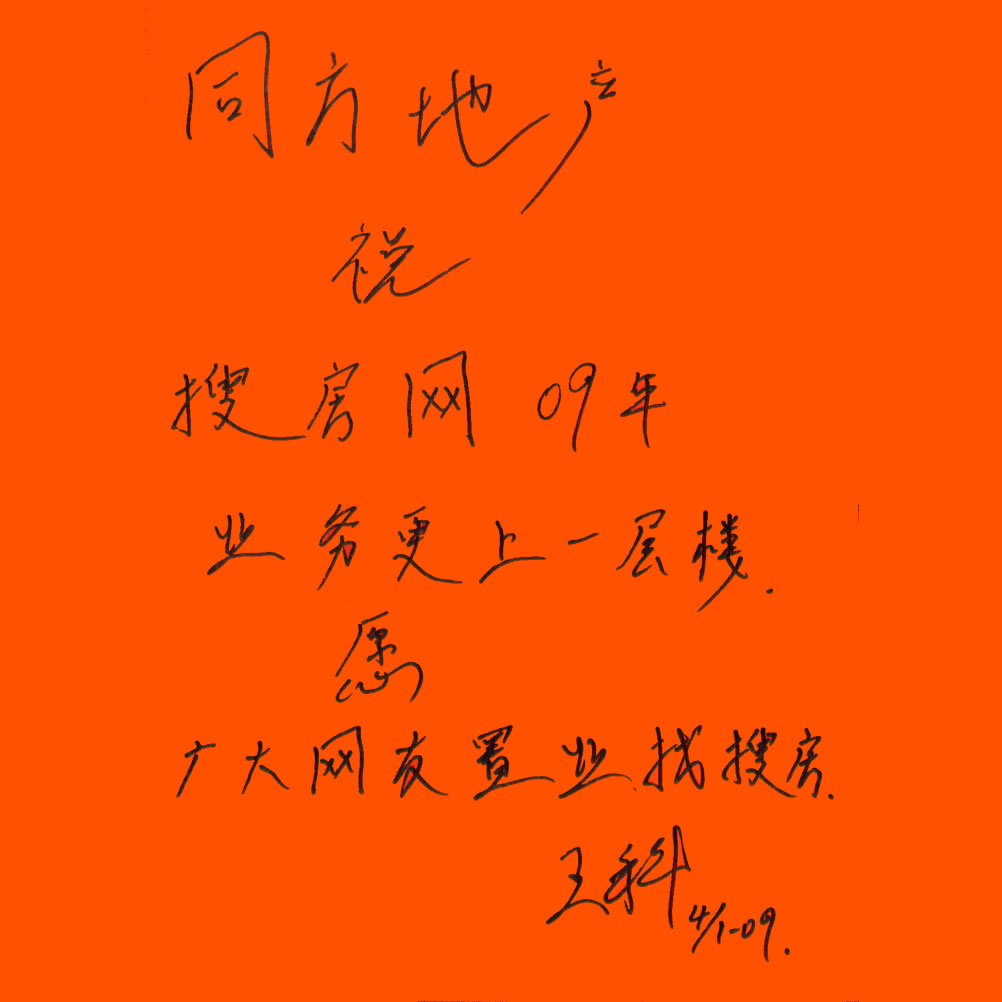 同方地产
祝
搜房网 09年
业务更上一层楼.
愿
广大网友置业找搜房.
王科 4/1-09.